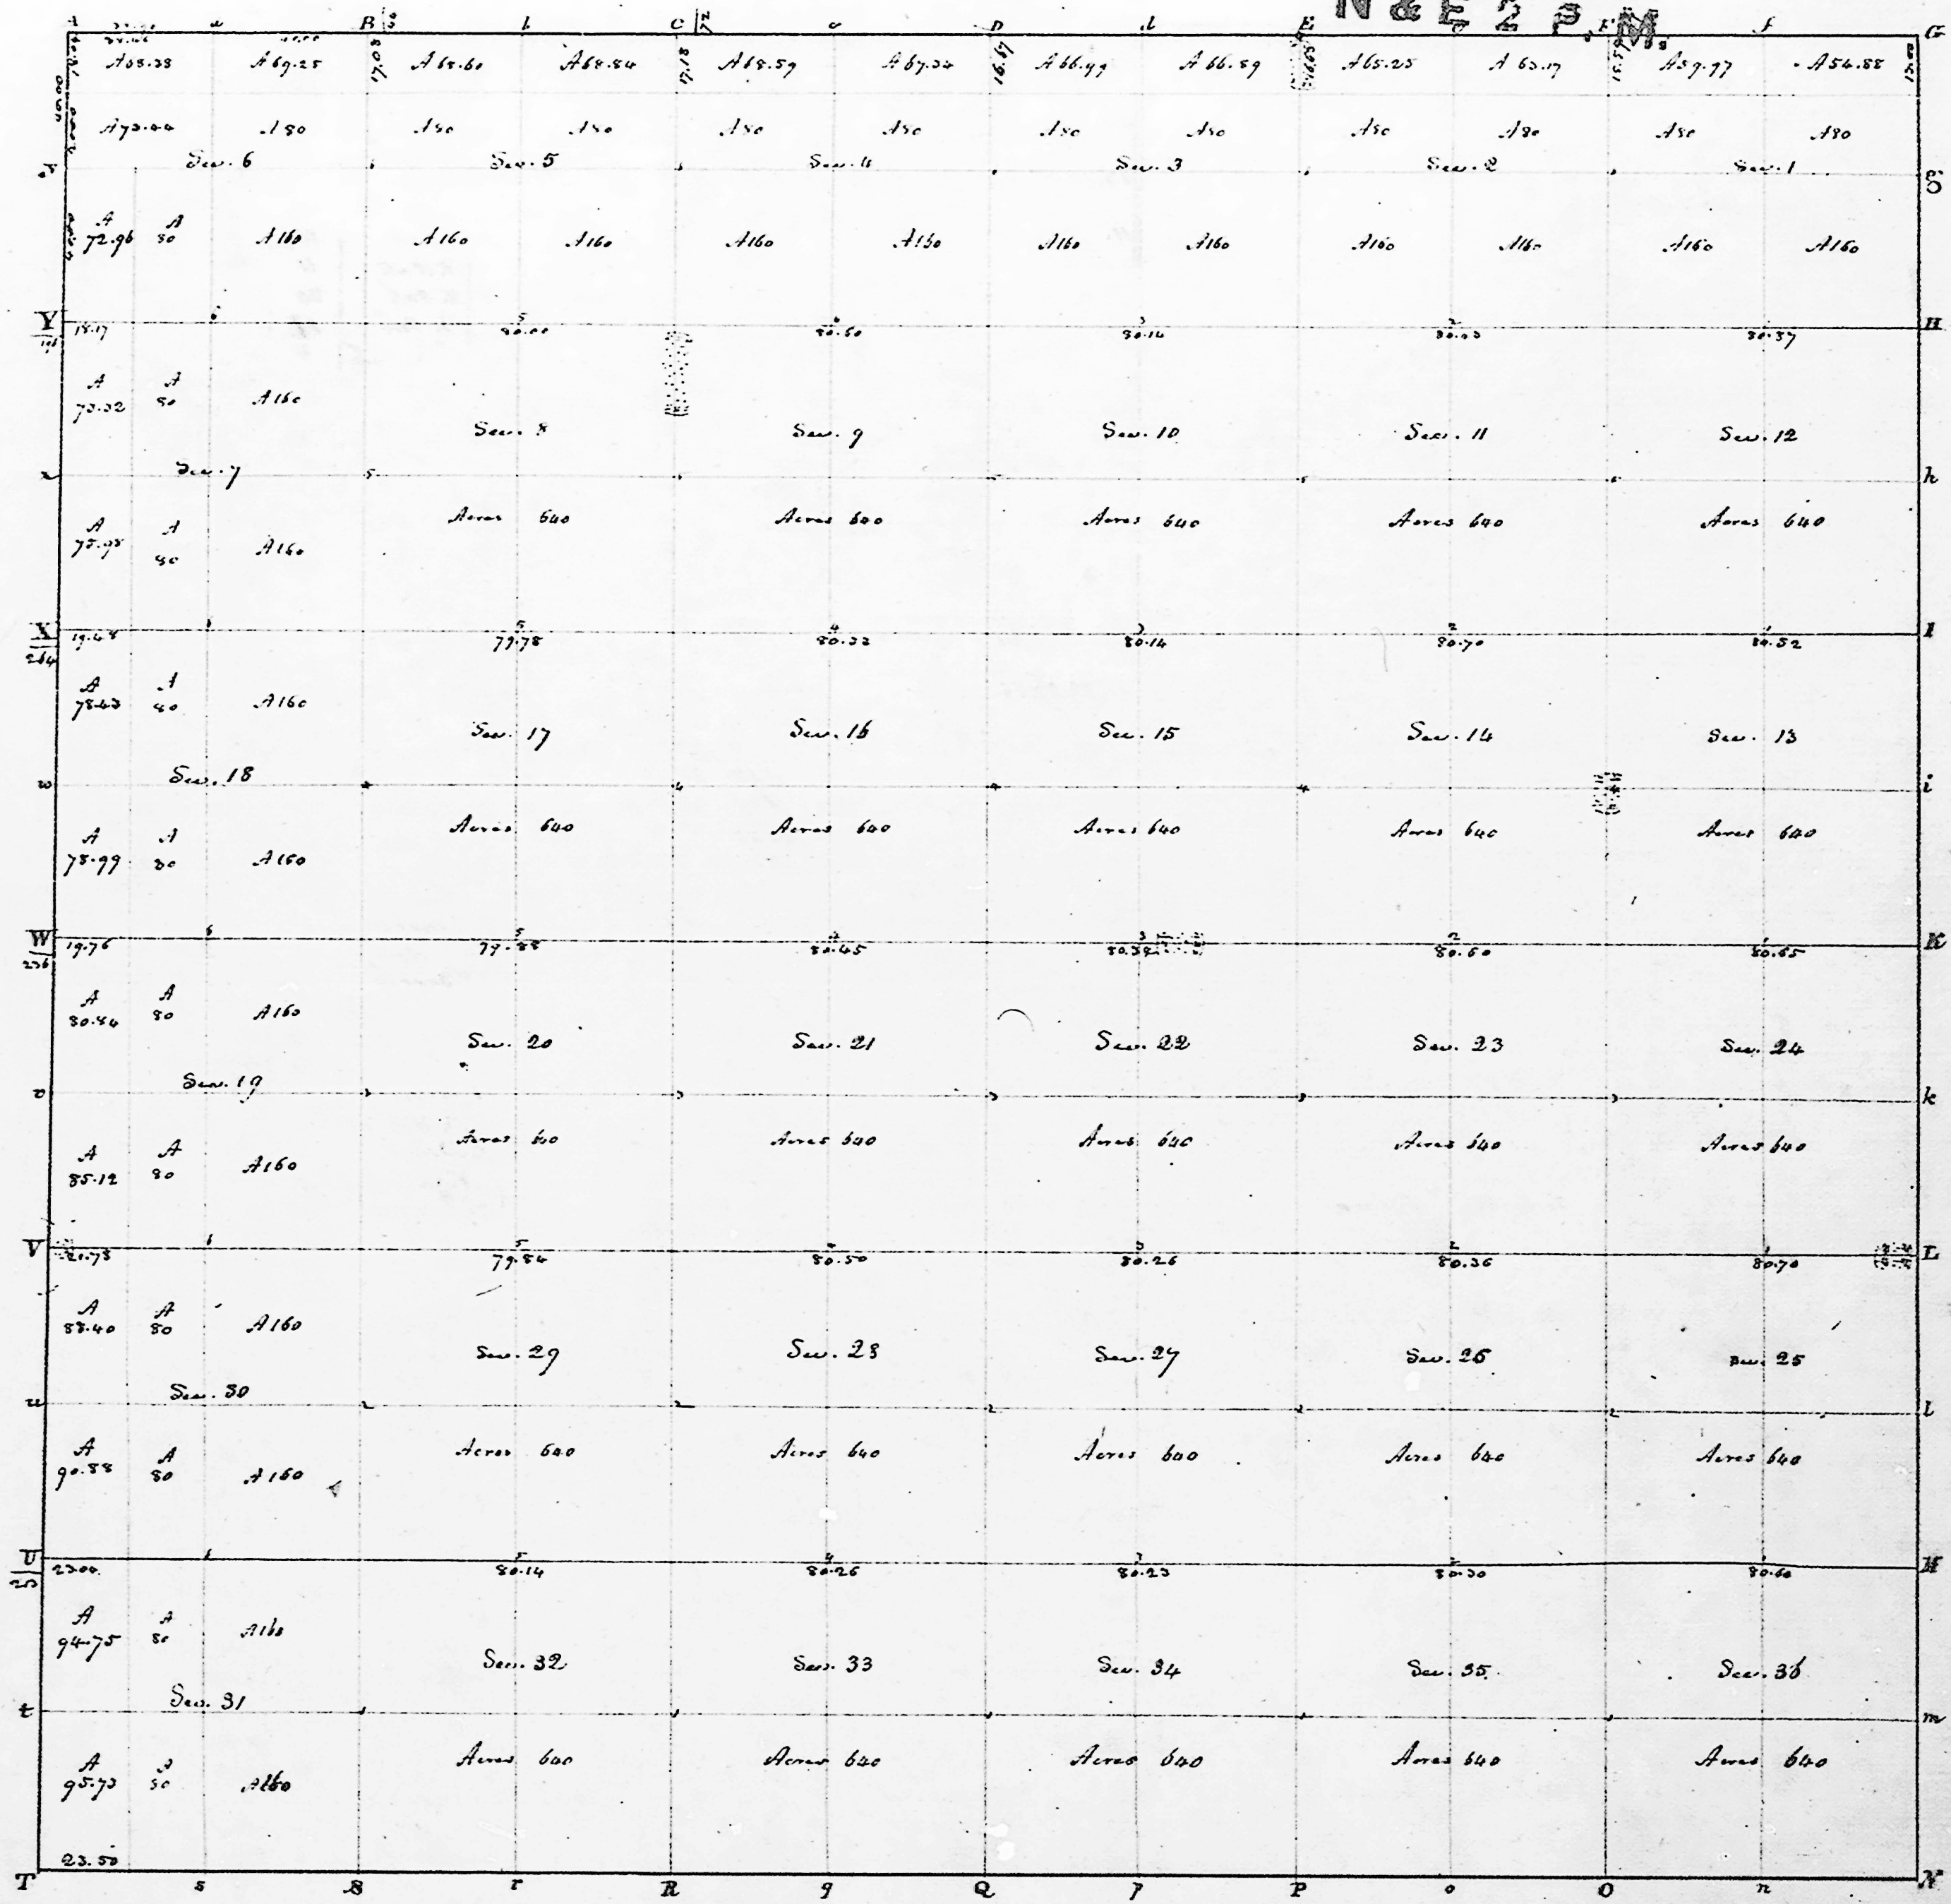 N & E 2 P. M.
A a B b C c D d E F f G
17.08 17.18 16.67
A 69.25 A 68.60 A 68.84 A 68.59 A 67.34 A 66.99 A 66.89 A 65.25 A 63.17 A 59.97 A 54.88
A 73.44 A 80 A 80 A 80 A 80 A 80 A 80 A 80 A 80 A 80 A 80 A 80
Sec. 6 Sec. 5 Sec. 4 Sec. 3 Sec. 2 Sec. 1 g
A 72.96 A 80 A 160 A 160 A 160 A 160 A 160 A 160 A 160 A 160 A 160 A 160 A 160
Y 18.17 6 5 80.00 4 80.60 3 80.14 2 1 80.37 H
A 73.32 A 80 A 160
Sec. 8 Sec. 9 Sec. 10 Sec. 11 Sec. 12
x Sec. 7 5 h
A 75.98 A 80 A 160
Acres 640 Acres 640 Acres 640 Acres 640 Acres 640
X 264 19.48 5 79.78 4 80.32 3 80.14 2 80.70 80.52 I
A 78.43 A 80 A 160
Sec. 17 Sec. 16 Sec. 15 Sec. 14 Sec. 13
w Sec. 18 4 4 4 4 i
A 78.99 A 80 A 160
Acres 640 Acres 640 Acres 640 Acres 640 Acres 640
W 236 19.76 6 5 79.88 4 80.45 3 2 80.60 80.65 K
A 80.84 A 80 A 160
Sec. 20 Sec. 21 Sec. 22 Sec. 23 Sec. 24
v Sec. 19 3 3 3 3 3 k
A 85.12 A 80 A 160
Acres 640 Acres 640 Acres 640 Acres 640 Acres 640
V 21.73 6 5 79.84 4 80.50 3 80.26 2 80.36 1 80.70 L
A 88.40 A 80 A 160
Sec. 29 Sec. 28 Sec. 27 Sec. 26 Sec. 25
u Sec. 30 2 2 2 2 2 l
A 90.88 A 80 A 160
Acres 640 Acres 640 Acres 640 Acres 640 Acres 640
U 253 23.04 6 5 80.14 4 80.26 3 80.23 2 80.30 1 80.60 M
A 94.75 A 80 A 160
Sec. 32 Sec. 33 Sec. 34 Sec. 35 Sec. 36
t Sec. 31 m
A 95.73 A 80 A 160
Acres 640 Acres 640 Acres 640 Acres 640 Acres 640
23.50
T s S r R q Q p P o O n N